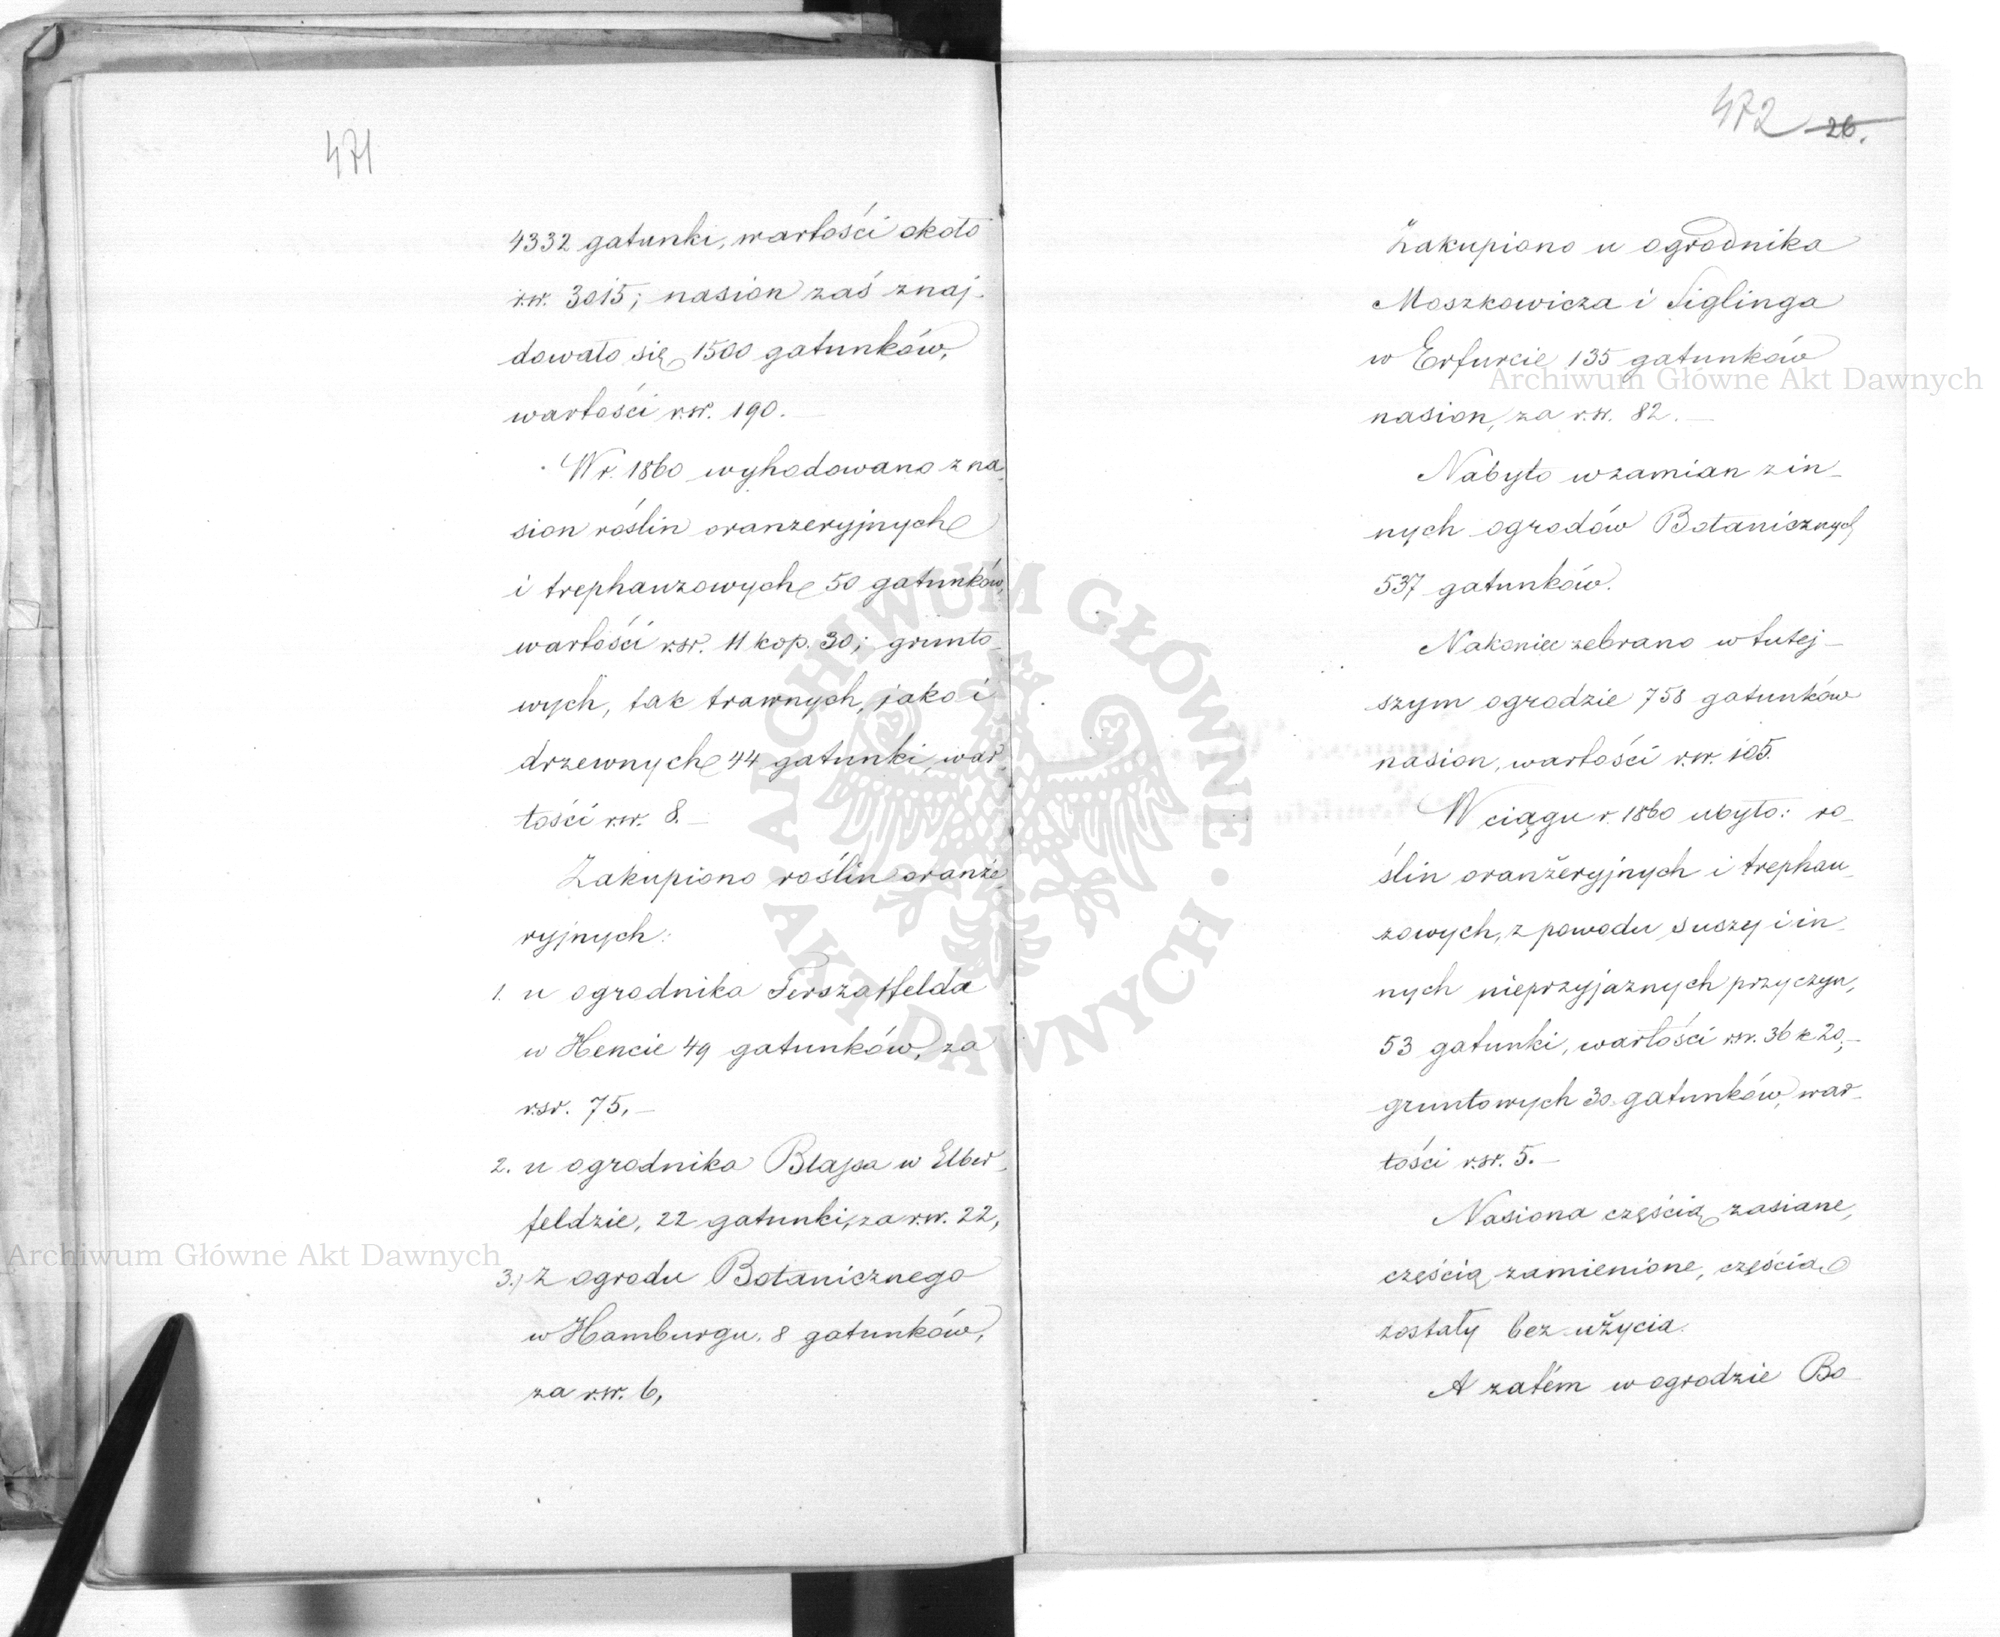 471
4332 gatunki, wartości około
rsr. 3015; nasion zaś znaj-
dowało się 1500 gatunków,
wartości rsr. 190.—
W r. 1860 wyhodowano z na-
sion roślin oranzeryjnych
i trephauzowych 50 gatunków,
wartości rsr. 11 kop. 30; grunto-
wych, tak trawnych, jako i
drzewnych 44 gatunki, war-
tości rsr. 8.—
Zakupiono roślin oranże-
ryjnych:
1. u ogrodnika Ferszaffelda
w Hencie 49 gatunków, za
rsr. 75,—
2. u ogrodnika Blajsa w Elber-
feldzie, 22 gatunki, za rsr. 22,
3.) z ogrodu Botanicznego
w Hamburgu, 8 gatunków,
za rsr. 6,
472 26.
Zakupiono u ogrodnika
Moszkowicza i Siglinga
w Erfurcie 135 gatunków
nasion, za rsr. 82.—
Nabyto wzamian z in-
nych ogrodów Botanicznych
537 gatunków.
Nakoniec zebrano w tutej-
szym ogrodzie 758 gatunków
nasion, wartości rsr. 105.
W ciągu r. 1860 ubyło: ro-
ślin oranżeryjnych i trephau-
zowych, z powodu suszy i in-
nych nieprzyjaznych przyczyn,
53 gatunki, wartości rsr. 36 k 20,—
gruntowych 30 gatunków, war-
tości rsr. 5.—
Nasiona częścią zasiane,
częścią zamienione, częścią
zostały bez użycia.
A zatém w ogrodzie Bo-
Archiwum Główne Akt Dawnych
Archiwum Główne Akt Dawnych
ARCHIWUM GŁÓWNE · AKT DAWNYCH ·